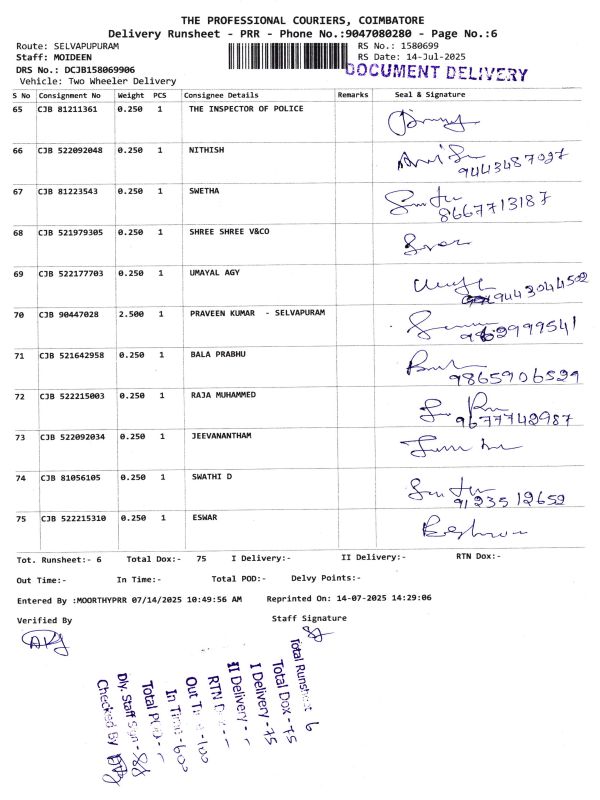 THE PROFESSIONAL COURIERS, COIMBATORE
Delivery Runsheet - PRR - Phone No.:9047080280 - Page No.:6
Route: SELVAPUPURAM
RS No.: 1580699
Staff: MOIDEEN
RS Date: 14-Jul-2025
DRS No.: DCJB158069906
DOCUMENT DELIVERY
Vehicle: Two Wheeler Delivery
S No Consignment No Weight PCS Consignee Details Remarks Seal & Signature
65 CJB 81211361 0.250 1 THE INSPECTOR OF POLICE
66 CJB 522092048 0.250 1 NITHISH
9443487027
67 CJB 81223543 0.250 1 SWETHA
8667713187
68 CJB 521979305 0.250 1 SHREE SHREE V&CO
69 CJB 522177703 0.250 1 UMAYAL AGY
9443044502
70 CJB 90447028 2.500 1 PRAVEEN KUMAR - SELVAPURAM
9962999541
71 CJB 521642958 0.250 1 BALA PRABHU
9865906529
72 CJB 522215003 0.250 1 RAJA MUHAMMED
9677742987
73 CJB 522092034 0.250 1 JEEVANANTHAM
74 CJB 81056105 0.250 1 SWATHI D
9123512652
75 CJB 522215310 0.250 1 ESWAR
Tot. Runsheet:- 6 Total Dox:- 75 I Delivery:- II Delivery:- RTN Dox:-
Out Time:- In Time:- Total POD:- Delvy Points:-
Entered By :MOORTHYPRR 07/14/2025 10:49:56 AM Reprinted On: 14-07-2025 14:29:06
Verified By Staff Signature
Total Runsheet 6
Total Dox - 75
I Delivery - 75
II Delivery - -
RTN Dox - -
Out Time - 100
In Time - 600
Total POD - -
Dly. Staff Sign -
Checked By